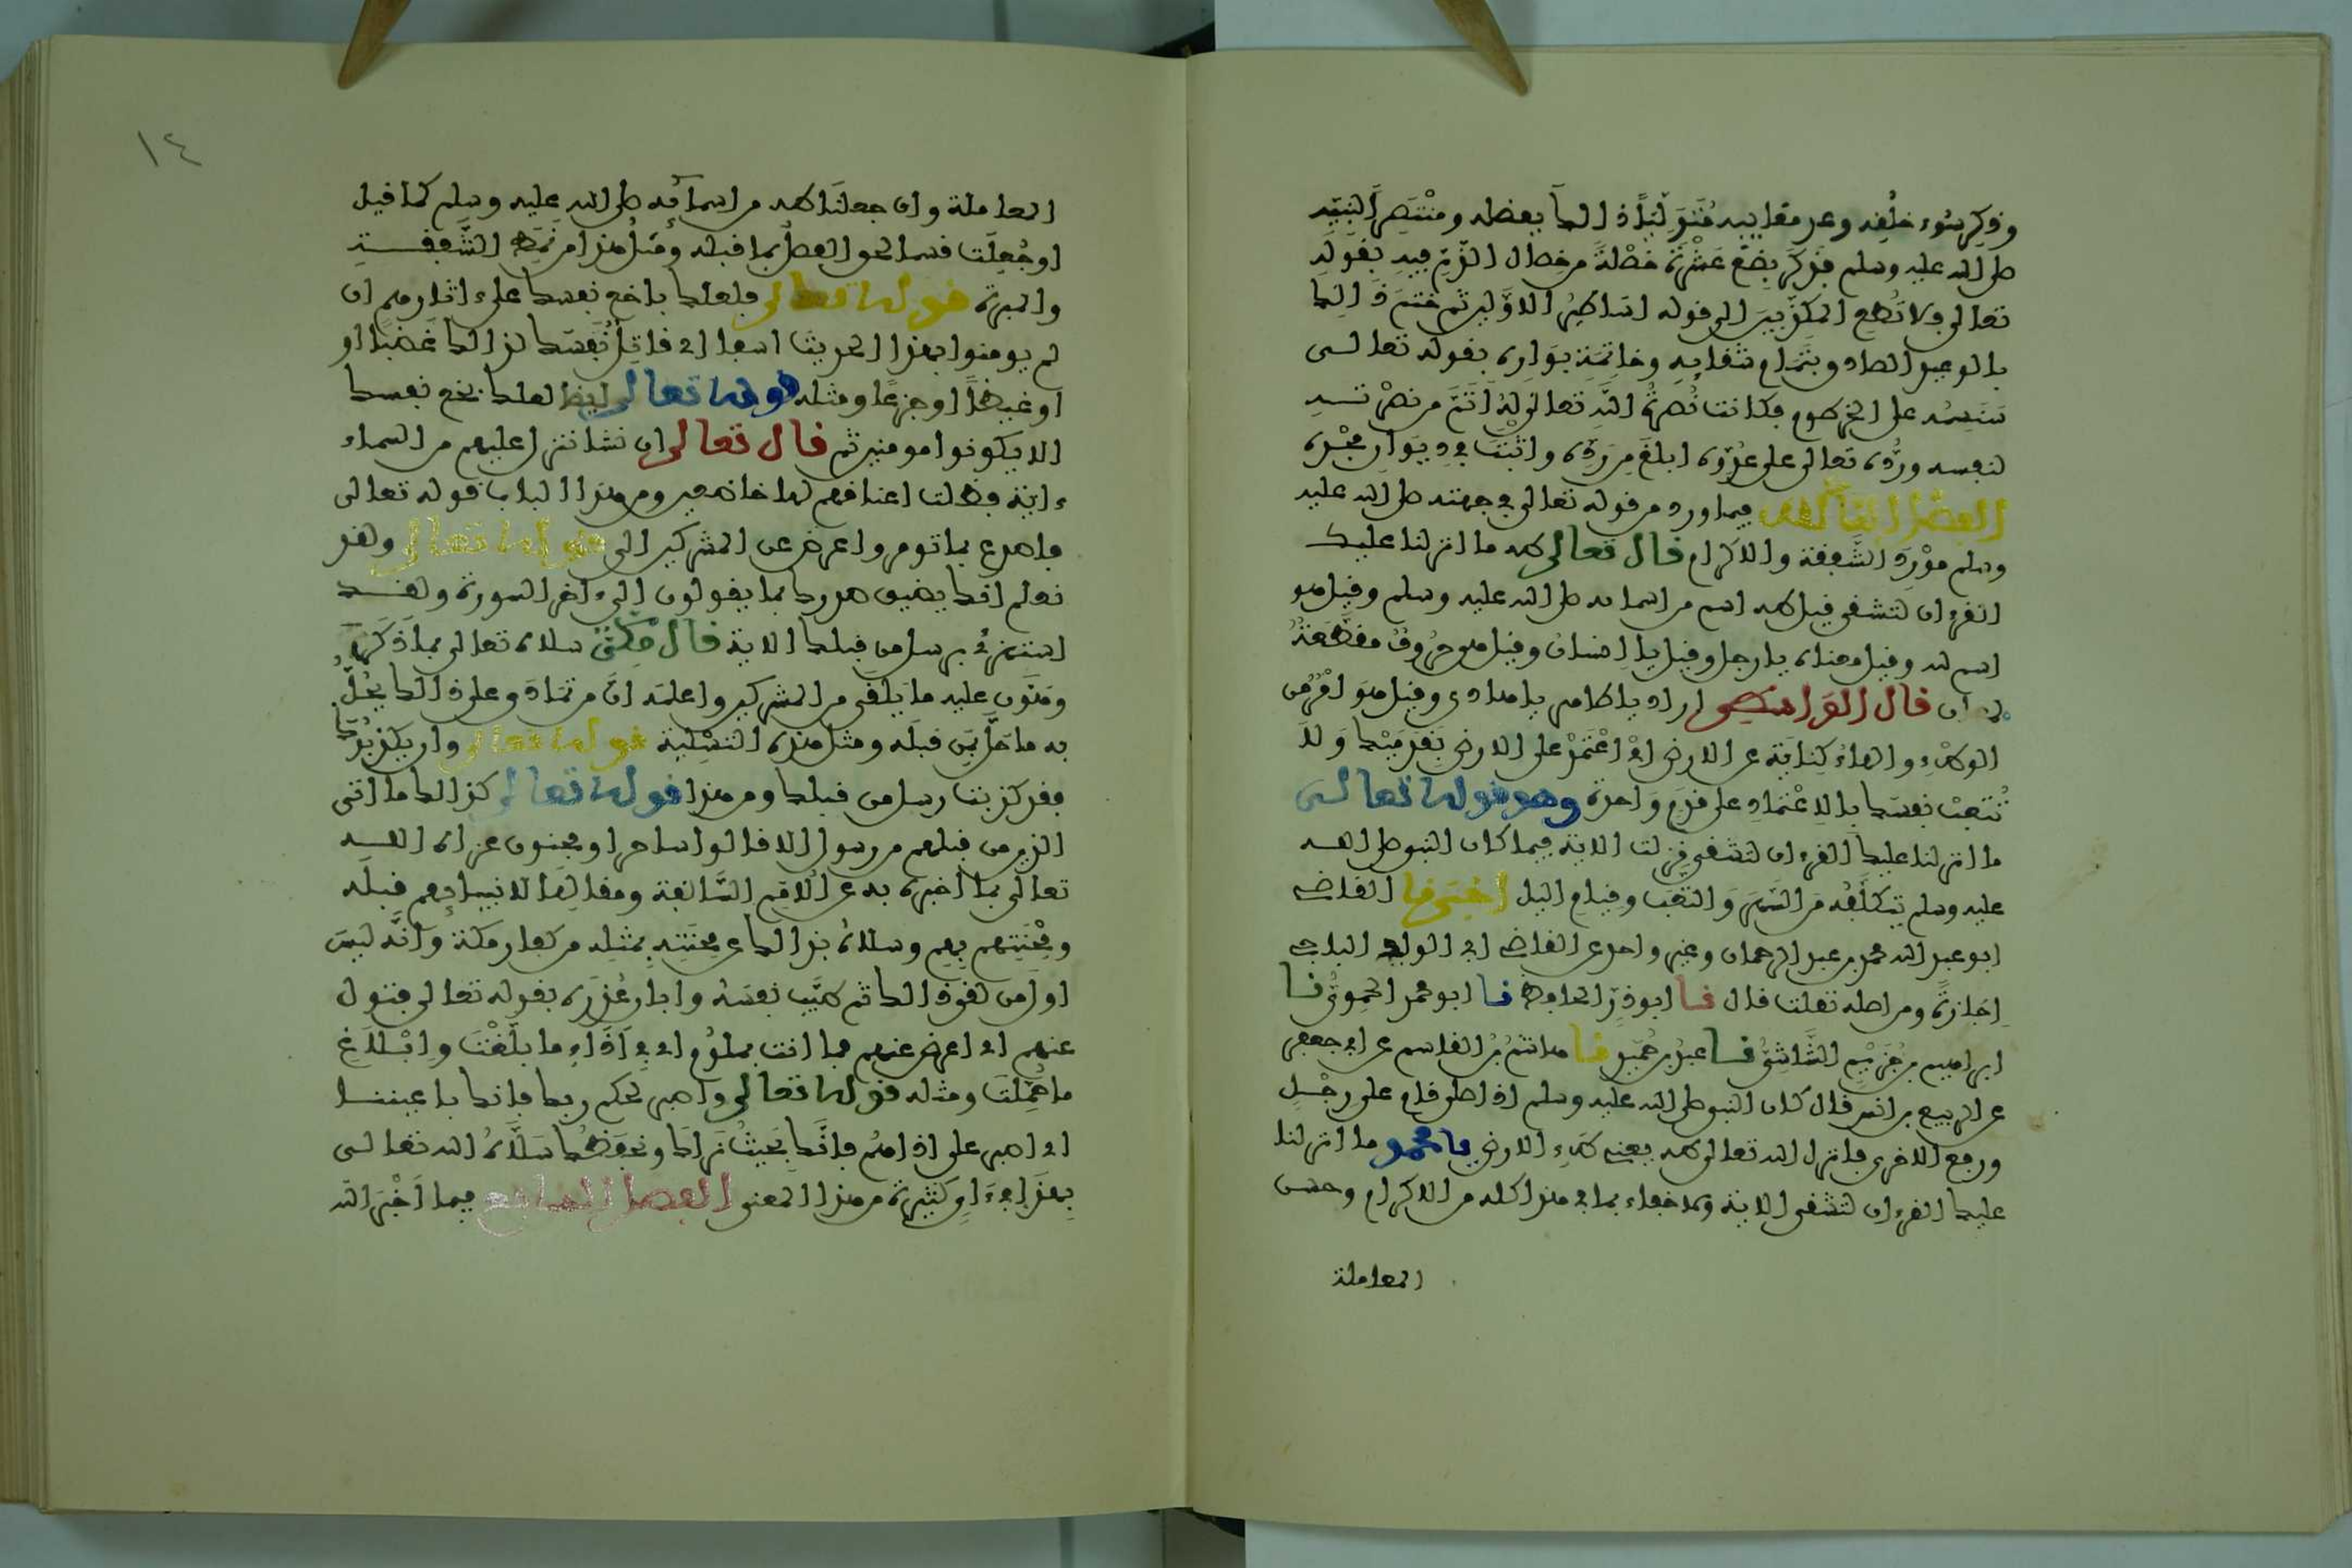 وذكر سوء خلقه وعد معايبه متوليا ذلك بفضله ومنتصرا لنبيه
صلى الله عليه وسلم فذكر بضع عشرة خصلة من خصال الذم فيه بقوله
تعالى ولا تطع المكذبين الى قوله اساطير الاولين ثم ختم ذلك
بالوعيد الصادق بتمام شقايه وخاتمة بواره بقوله تعالى
سنسمه على الخرطوم فكانت نصرة الله تعالى له اتم من نصرته
لنفسه ورده تعالى على عدوه ابلغ من رده واثبت في ديوان مجده
الفصل السادس فيما ورد من قوله تعالى في جهته صلى الله عليه
وسلم مورد الشفقة والاكرام قال تعالى طه ما انزلنا عليك
القرءان لتشقى قيل طه اسم من اسمائه صلى الله عليه وسلم وقيل هو
اسم لله وقيل معناه يا رجل وقيل يا انسان وقيل هي حروف مقطعة
لمعان قال الواسطي اراد يا طاهر يا هادي وقيل هو امر من
الوطء والهاء كناية عن الارض اي اعتمد على الارض بقدميك ولا
تتعب نفسك بالاعتماد على قدم واحدة وهو قوله تعالى
ما انزلنا عليك القرءان لتشقى نزلت الاية فيما كان النبي صلى الله
عليه وسلم يتكلفه من السهر والتعب وقيام اليل اخبرنا القاضي
ابو عبد الله محمد بن عبد الرحمان وغير واحد عن القاضي ابي الوليد الباجي
اجازة ومن اصله نقلت قال نا ابو ذر الحافظ نا ابو محمد الحموي نا
ابراهيم بن خزيم الشاشي نا عبد بن حميد نا هاشم بن القاسم عن ابي جعفر
عن الربيع بن انس قال كان النبي صلى الله عليه وسلم اذا صلى قام على رجل
ورفع الاخرى فانزل الله تعالى طه يعني طء الارض يا محمد ما انزلنا
عليك القرءان لتشقى الاية ولا خفاء بما في هذا كله من الاكرام وحسن
المعاملة
١٤
المعاملة وان جعلنا طه من اسمائه صلى الله عليه وسلم كما قيل
او جعلت قسما لحق الفصل بما قبله ومثل هذا من نمط الشفقة
والمبرة قوله تعالى فلعلك باخع نفسك على اثارهم ان
لم يومنوا بهذا الحديث اسفا اي قاتل نفسك لذلك غضبا او
او غيظا او جزعا ومثله قوله تعالى ايضا لعلك باخع نفسك
الا يكونوا مومنين ثم قال تعالى ان نشا ننزل عليهم من السماء
ءاية فظلت اعناقهم لها خاضعين ومن هذا الباب قوله تعالى
فاصدع بما تومر واعرض عن المشركين الى قوله تعالى ولقد
نعلم انك يضيق صدرك بما يقولون الى ءاخر السورة ولقد
استهزئ برسل من قبلك الاية قال مكي سلاه تعالى بما ذكر
وهون عليه ما يلقى من المشركين واعلمه ان من تمادى على ذلك يحل
به ما حل بمن قبله ومثل هذه التسلية قوله تعالى وان يكذبوك
فقد كذبت رسل من قبلك ومن هذا قوله تعالى كذلك ما اتى
الذين من قبلهم من رسول الا قالوا ساحر او مجنون عزاه الله
تعالى بما اخبره به عن الامم السالفة ومقالها لانبيائهم قبله
ومحنتهم بهم وسلاه بذلك عن محنته بمثله من كفار مكة وانه ليس
اول من لقي ذلك ثم طيب نفسه وابان عذره بقوله تعالى فتول
عنهم اي اعرض عنهم فما انت بملوم اي في اداء ما بلغت وابلاغ
ما حملت ومثله قوله تعالى واصبر لحكم ربك فانك باعيننا
اي اصبر على اذاهم فانك بحيث نراك ونحفظك سلاه الله تعالى
بهذا في ءاي كثيرة من هذا المعنى الفصل السابع فيما اخبر الله